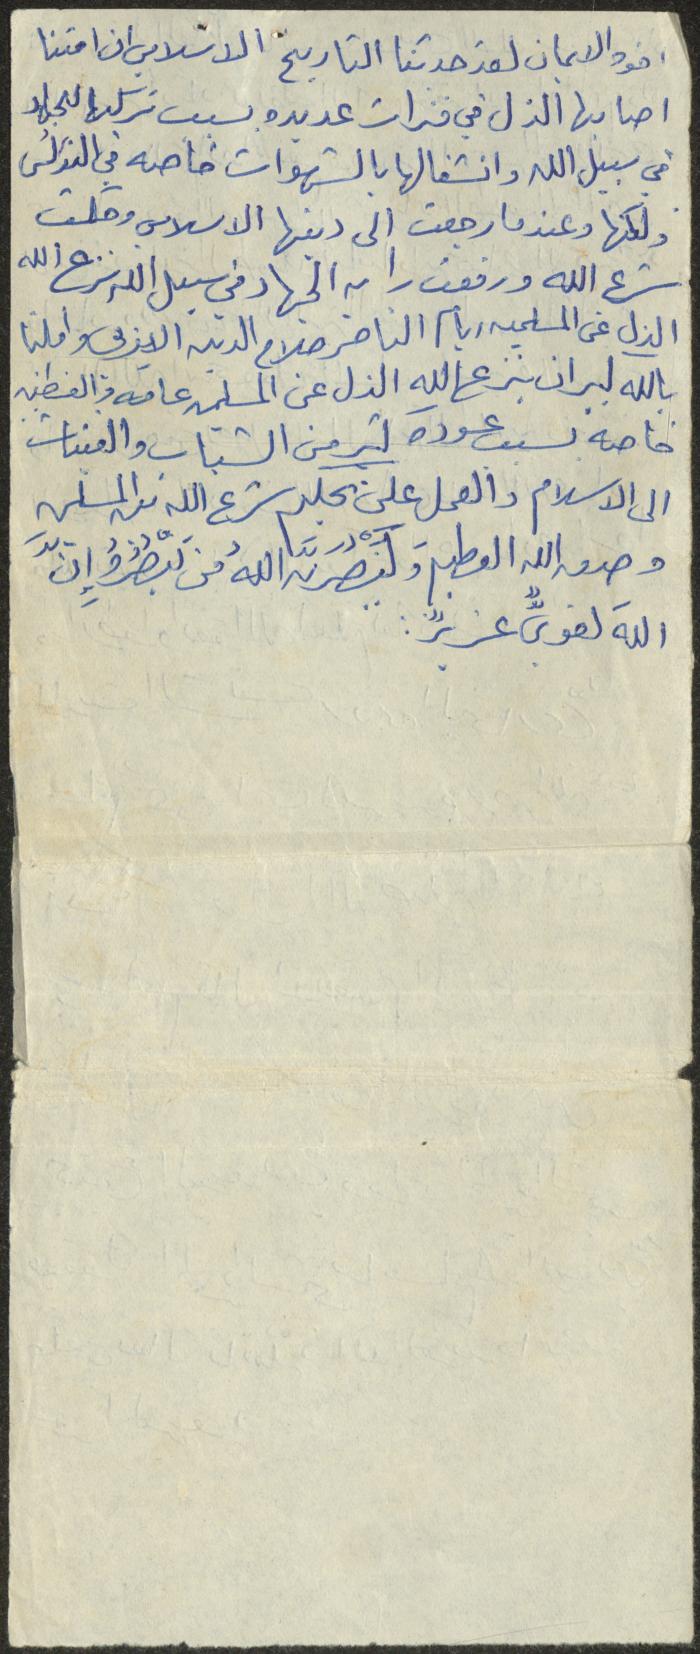 اخوة الايمان لقد حدثنا التاريخ الاسلامي ان امتنا
اصابها الذل في فترات عديده بسبب تركها للجهاد
في سبيل الله وانشغالها بالشهوات خاصه في الاندلس
ولكنها وعندما رجعت الى دينها الاسلامي وحكمت
شرع الله ورفعت راية الجهاد في سبيل الله نزع الله
الذل عن المسلمين ايام الناصر صلاح الدين الايوبي واملنا
بالله كبير ان ينزع الله الذل عن المسلمين عامه وفلسطين
خاصه بسبب عودة كثير من الشباب والفتيات
الى الاسلام والعمل على تحكيم شرع الله بين المسلمين
وصدق الله العظيم وَلَيَنْصُرَنَّ اللهُ مَن يَنْصُرُهُ إِنَّ
اللهَ لَقَوِيٌّ عَزِيزٌ: